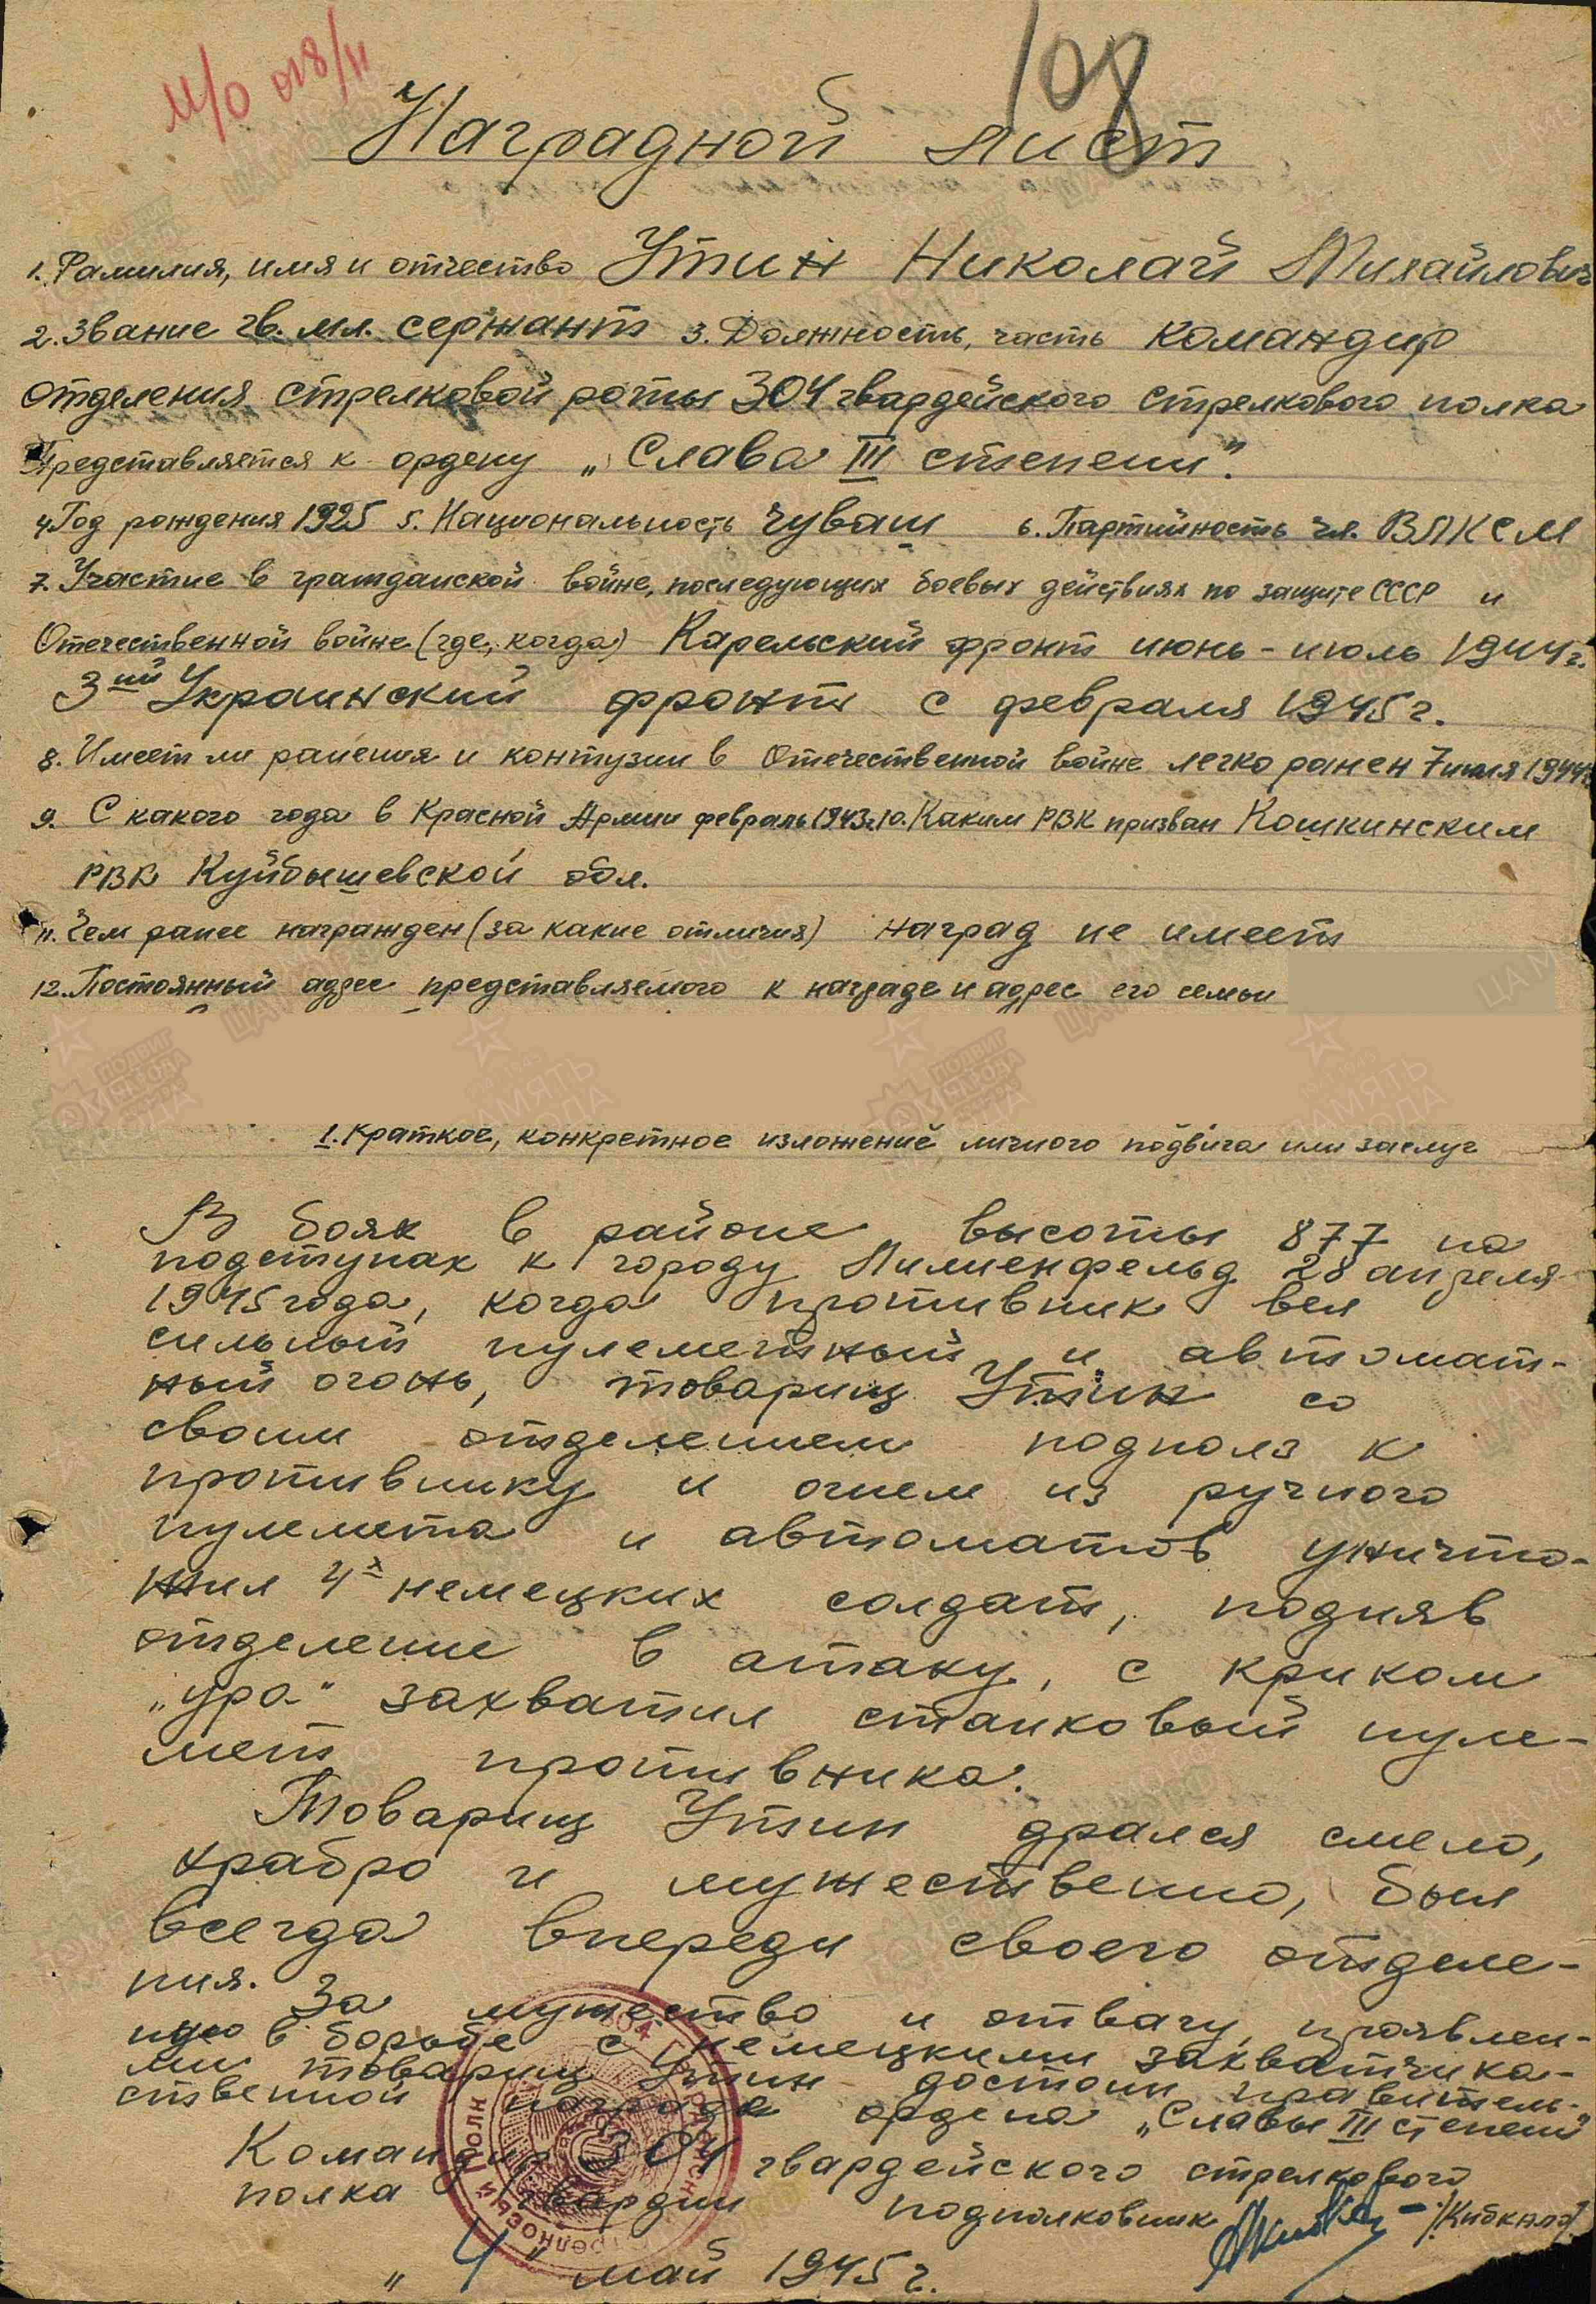 108
Наградной лист
1. Фамилия, имя и отчество Утин Николай Михайлович
2. Звание гв. мл. сержант 3. Должность, часть командир
отделения стрелковой роты 304 гвардейского стрелкового полка
Представляется к ордену „Слава III степени".
4. Год рождения 1925 5. Национальность чуваш 6. Партийность чл. ВЛКСМ
7. Участие в гражданской войне, последующих боевых действиях по защите СССР и
Отечественной войне (где, когда) Карельский фронт июнь - июль 1944 г.
3ий Украинский фронт с февраля 1945 г.
8. Имеет ли ранения и контузии в Отечественной войне легко ранен 7 июля 1944
9. С какого года в Красной Армии февраль 1943г. 10. Каким РВК призван Кошкинским
РВК Куйбышевской обл.
11. Чем ранее награжден (за какие отличия) наград не имеет
12. Постоянный адрес представляемого к награде и адрес его семьи
1. Краткое, конкретное изложение личного подвига или заслуг
В боях в районе высоты 877 на
подступах к городу Лилиенфельд 28 апреля
1945 года, когда противник вел
сильный пулеметный и автомат-
ный огонь, товарищ Утин со
своим отделением подполз к
противнику и огнем из ручного
пулемета и автоматов уничто-
жил 4х немецких солдат, подняв
отделение в атаку, с криком
„ура" захватил станковый пуле-
мет противника.
Товарищ Утин дрался смело,
храбро и мужественно, был
всегда впереди своего отделе-
ния. За мужество и отвагу, проявлен-
ную в борьбе с немецкими захватчика-
ми товарищ Утин достоин правитель-
ственной награды ордена „Славы III степени"
Командир 304 гвардейского стрелкового
полка гвардии подполковник /Кибкало/
„4" май 1945 г.